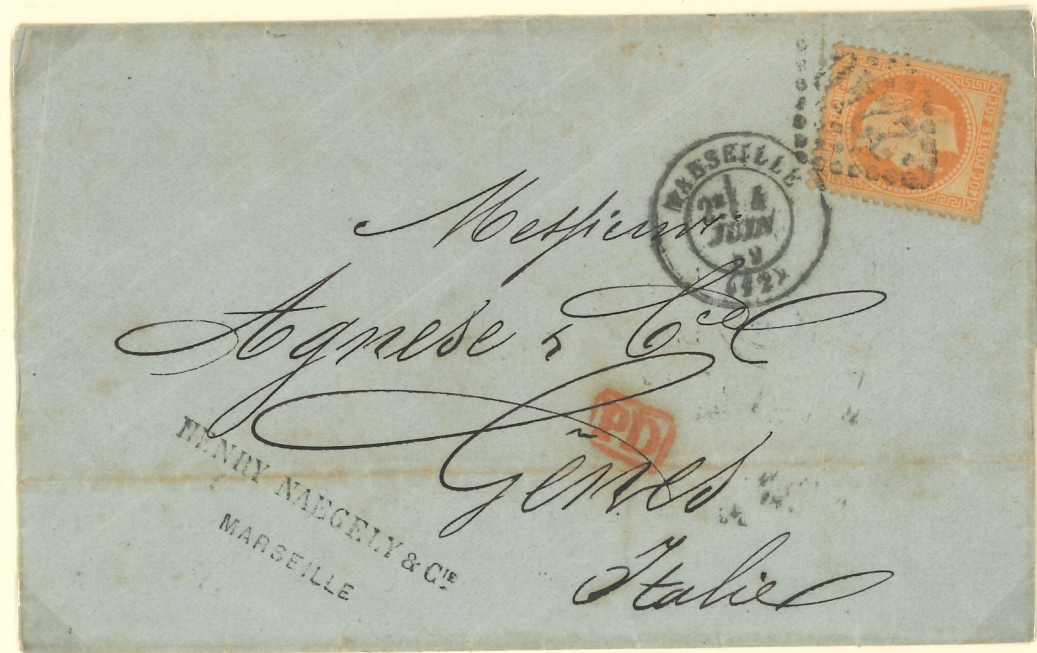 40C POSTES 40C
MARSEILLE
2E 4
JUIN
69
(12)
Messieurs
Agnese & Cie
PD
Gênes
Italie
HENRY NAEGELY & CIE
MARSEILLE